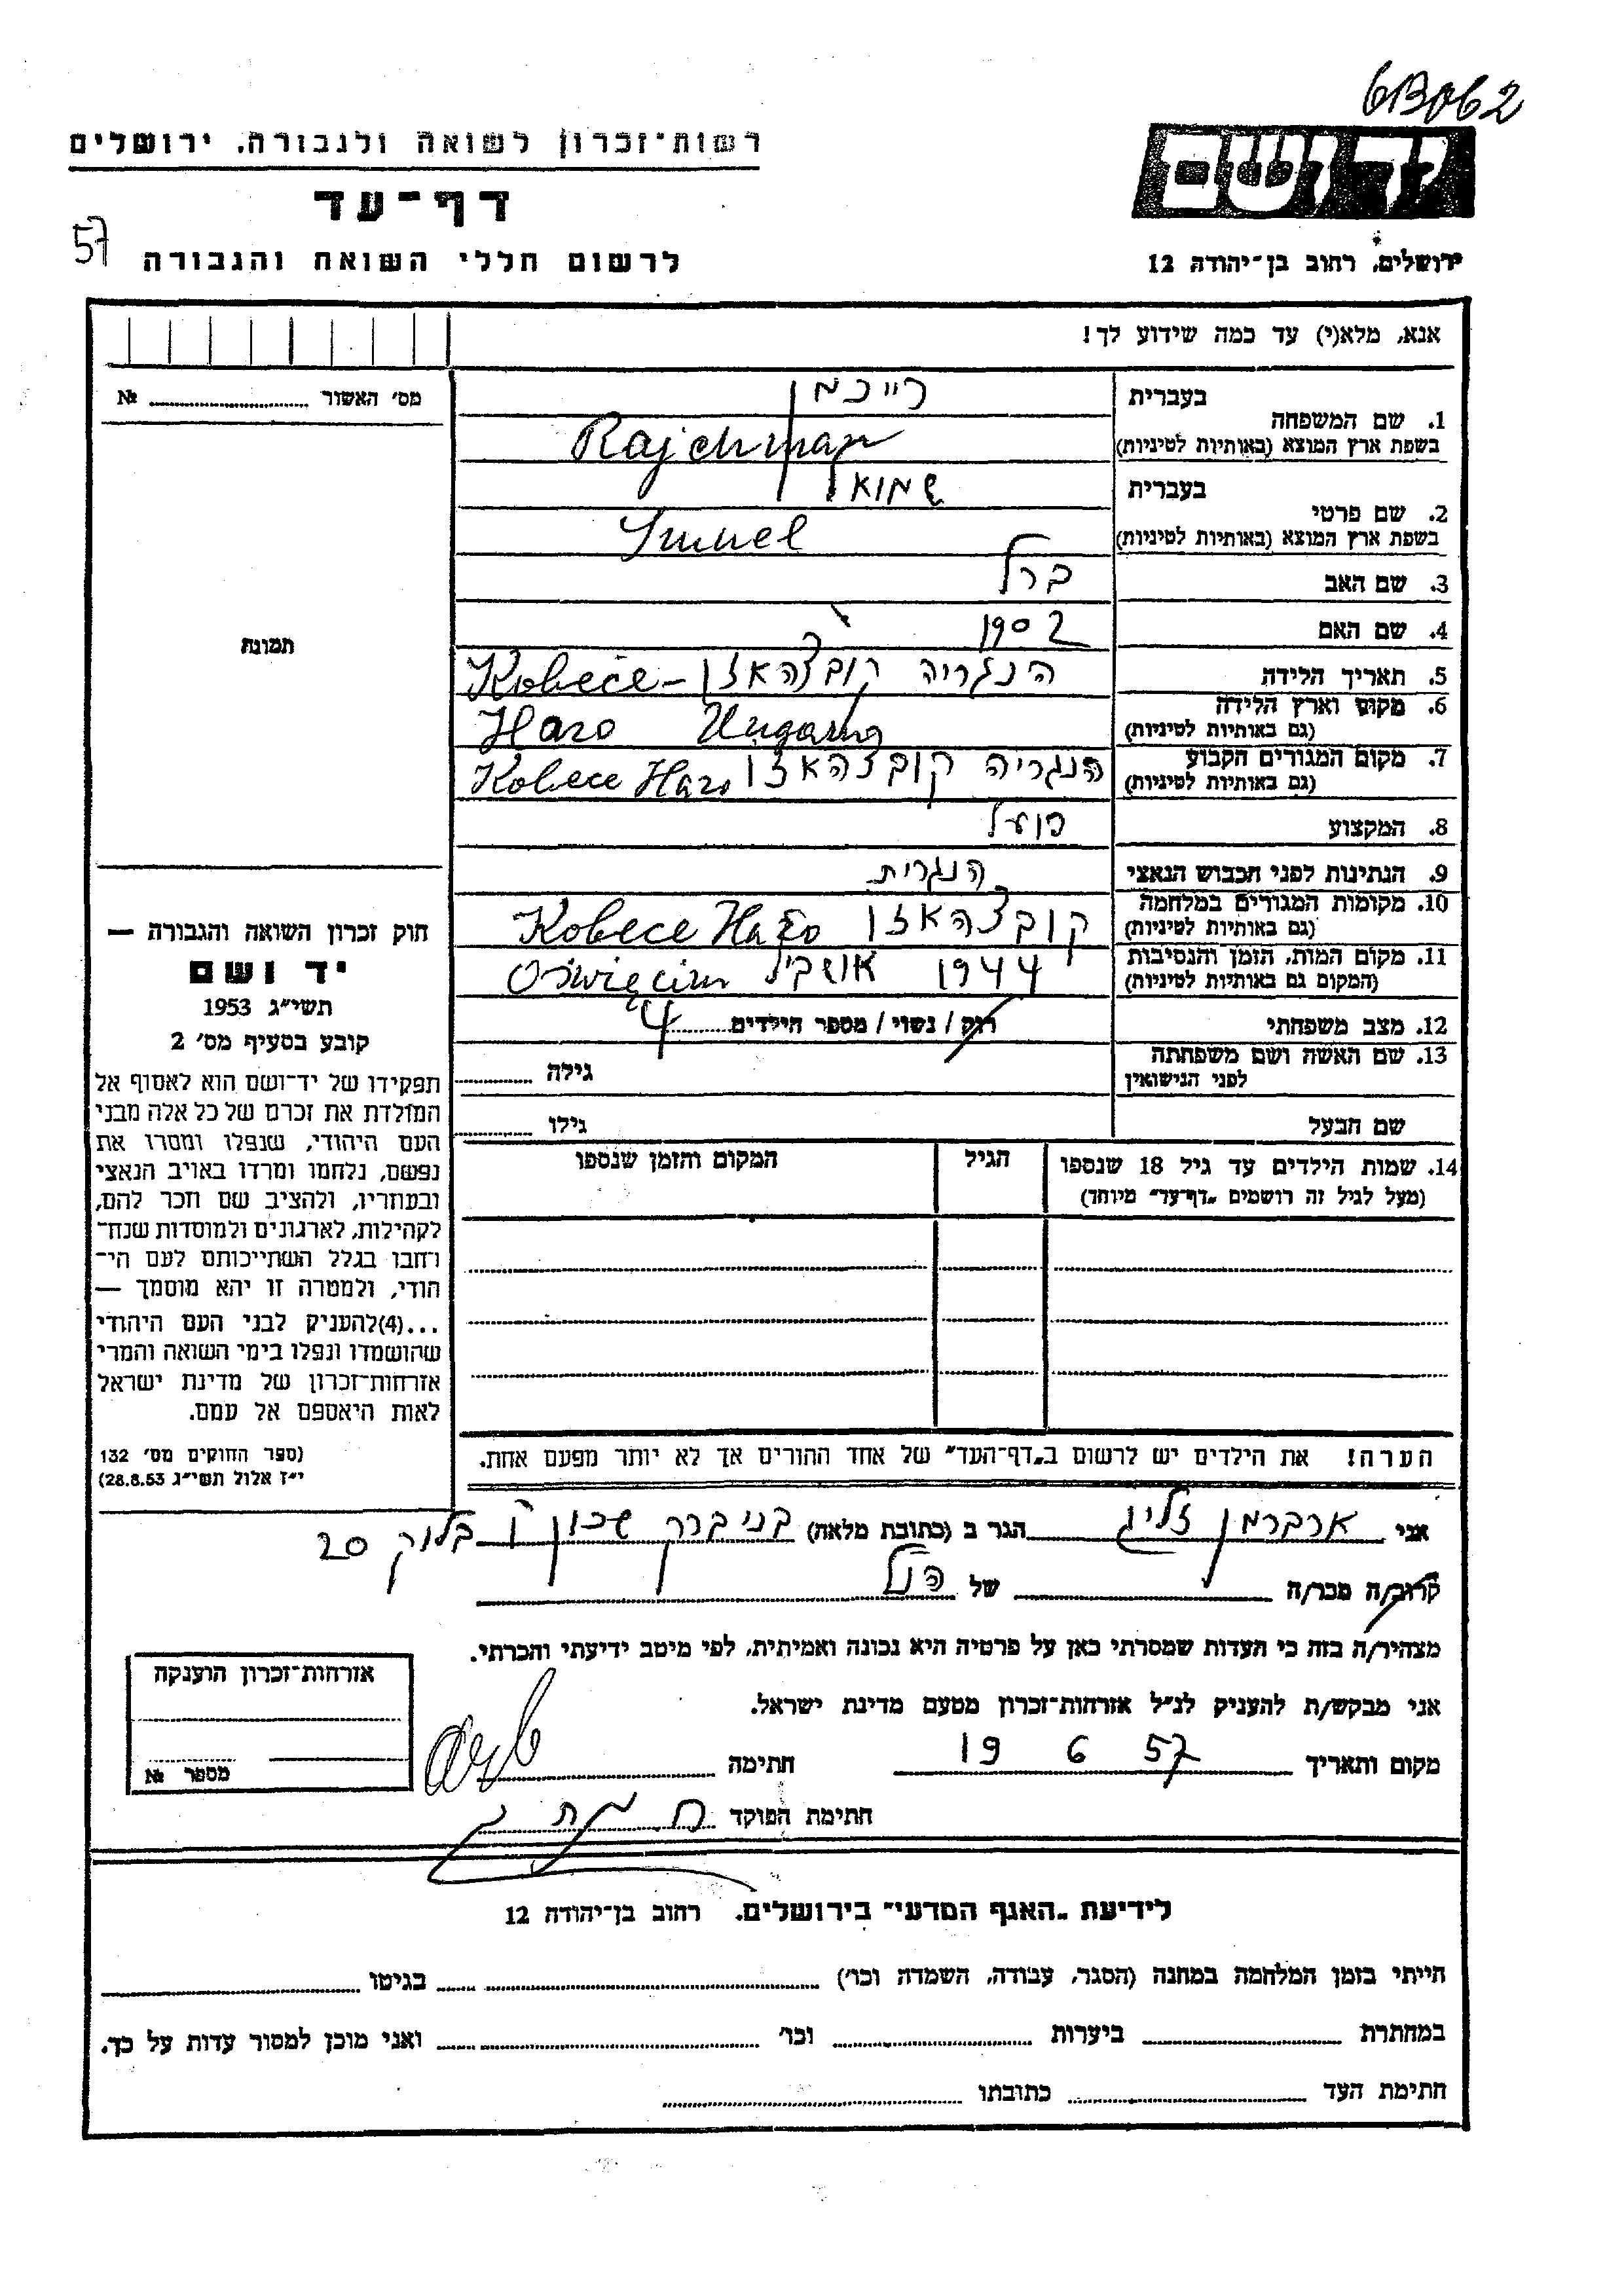 6B062
רשות־זכרון לשואה ולגבורה, ירושלים
דף־עד
57
לרשום חללי השואה והגבורה
יד ושם
ירושלים, רחוב בן־יהודה 12
אנא, מלא(י) עד כמה שידוע לך!
מס׳ האשור № 
1. שם המשפחה בעברית רייכמן
בשפת ארץ המוצא (באותיות לטיניות) Rajchman
2. שם פרטי בעברית שמואל
בשפת ארץ המוצא (באותיות לטיניות)
3. שם האב ברל
4. שם האם
5. תאריך הלידה 1902
6. מקום וארץ הלידה (גם באותיות לטיניות) הנגריה קובצהאזו Kobece-
Hazo
7. מקום המגורים הקבוע (גם באותיות לטיניות) הנגריה קובצהאזו Kobece Hazo
8. המקצוע פועל
9. הנתינות לפני הכבוש הנאצי הנגרית
10. מקומות המגורים במלחמה (גם באותיות לטיניות) קובצהאזו Kobece Hazo
11. מקום המות, הזמן והנסיבות (המקום גם באותיות לטיניות) 1944 Oświęcim
12. מצב משפחתי רוק / נשוי / מספר הילדים 4
13. שם האשה ושם משפחתה לפני הנישואין גילה
שם הבעל גילו
14. שמות הילדים עד גיל 18 שנספו
(מעל לגיל זה רושמים „דף־עד״ מיוחד)
הגיל
המקום והזמן שנספו
הערה! את הילדים יש לרשום ב„דף־העד״ של אחד ההורים אך לא יותר מפעם אחת.
תמונה
חוק זכרון השואה והגבורה —
יד ושם
תשי״ג 1953
קובע בסעיף מס׳ 2
תפקידו של יד־ושם הוא לאסוף אל
המולדת את זכרם של כל אלה מבני
העם היהודי, שנפלו ומסרו את
נפשם, נלחמו ומרדו באויב הנאצי
ובעוזריו, ולהציב שם וזכר להם,
לקהילות, לארגונים ולמוסדות שנח־
רחבו בגלל השתייכותם לעם הי־
הודי, ולמטרה זו יהא מוסמך —
...(4) להעניק לבני העם היהודי
שהושמדו ונפלו בימי השואה והמרי
אזרחות־זכרון של מדינת ישראל
לאות היאספם אל עמם.
(ספר החוקים מס׳ 132
י״ז אלול תשי״ג 28.8.53)
אני ארברמן זליג הגר ב (כתובת מלאה) בני ברק שכון ו בלוק 20
קרוב/ה מכר/ה של הנ״ל
מצהיר/ה בזה כי העדות שמסרתי כאן על פרטיה היא נכונה ואמיתית, לפי מיטב ידיעתי והכרתי.
אני מבקש/ת להעניק לנ״ל אזרחות־זכרון מטעם מדינת ישראל.
מקום ותאריך 19 6 57 חתימה
חתימת הפוקד
אזרחות־זכרון הוענקה
מספר №
לידיעת „האגף המדעי״ בירושלים, רחוב בן־יהודה 12
הייתי בזמן המלחמה במחנה (הסגר, עבודה, השמדה וכו׳) בגיטו
במחתרת ביערות וכו׳ ואני מוכן למסור עדות על כך.
חתימת העד כתובתו